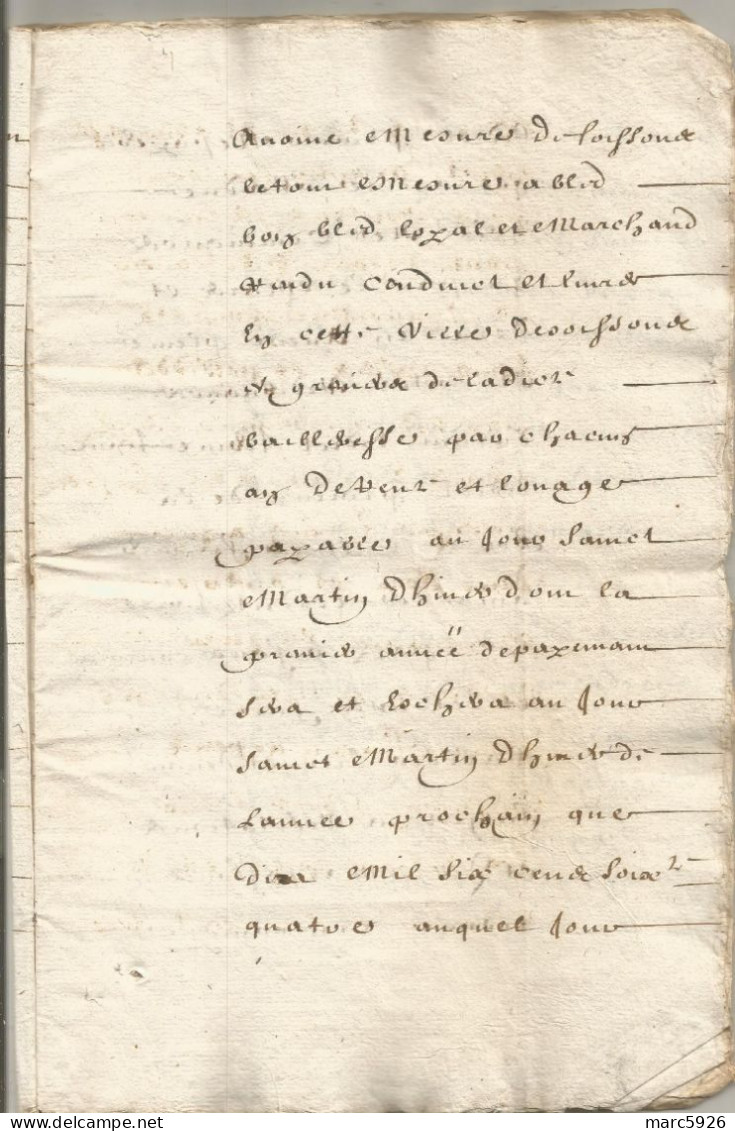 Avoine Mesure de soissons
le tout Mesure a bled
bon bled loyal et Marchand
Rendu conduict et livré
En cette ville de soissons
es greniers de ladicte
bailleresse par chacun
an de Rente et louage
payable au Jour sainct
Martin dhiver dont la
premiere année de payement
sera et Eschera au Jour
sainct Martin dhiver de
Lannee prochain que
dira Mil six cens soixte
quatre auquel Jour
marc5926